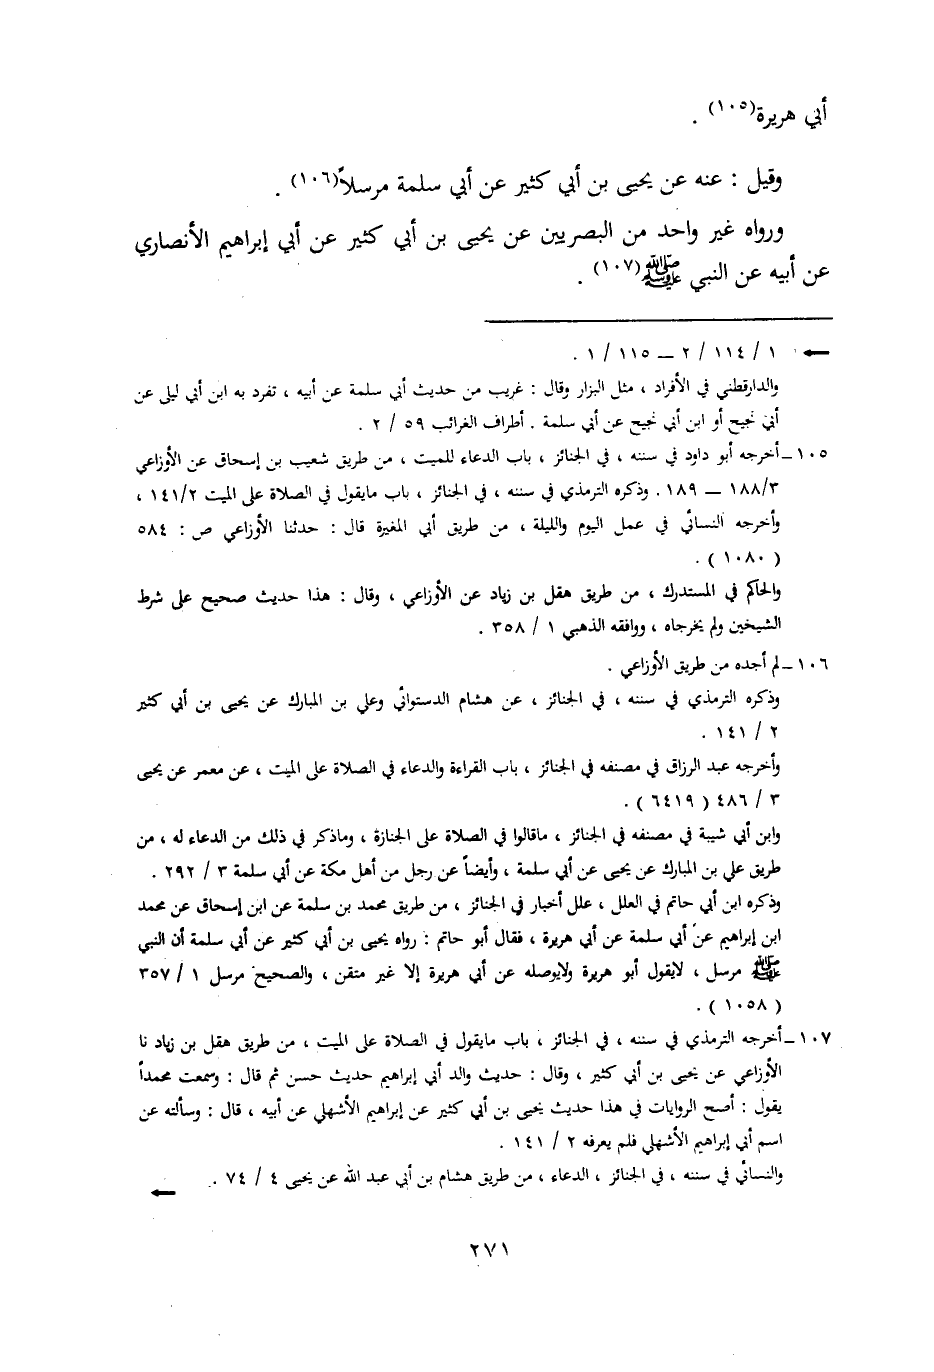 أبي هريرة(١٠٥) .
وقيل : عنه عن يحيى بن أبي كثير عن أبي سلمة مرسلاً(١٠٦) .
ورواه غير واحد من البصريين عن يحيى بن أبي كثير عن أبي إبراهيم الأنصاري
عن أبيه عن النبي ﷺ(١٠٧) .
← ١ / ١١٤ / ٢ – ١١٥ / ١ .
والدارقطني في الأفراد ، مثل البزار وقال : غريب من حديث أبي سلمة عن أبيه ، تفرد به ابن أبي ليلى عن
أبي نجيح أو ابن أبي نجيح عن أبي سلمة . أطراف الغرائب ٥٩ / ٢ .
١٠٥ – أخرجه أبو داود في سننه ، في الجنائز ، باب الدعاء للميت ، من طريق شعيب بن إسحاق عن الأوزاعي
٣/١٨٨ – ١٨٩ . وذكره الترمذي في سننه ، في الجنائز ، باب مايقول في الصلاة على الميت ٢/١٤١ ،
وأخرجه النسائي في عمل اليوم والليلة ، من طريق أبي المغيرة قال : حدثنا الأوزاعي ص : ٥٨٤
( ١٠٨٠ ) .
والحاكم في المستدرك ، من طريق هقل بن زياد عن الأوزاعي ، وقال : هذا حديث صحيح على شرط
الشيخين ولم يخرجاه ، ووافقه الذهبي ١ / ٣٥٨ .
١٠٦ – لم أجده من طريق الأوزاعي .
وذكره الترمذي في سننه ، في الجنائز ، عن هشام الدستوائي وعلي بن المبارك عن يحيى بن أبي كثير
٢ / ١٤١ .
وأخرجه عبد الرزاق في مصنفه في الجنائز ، باب القراءة والدعاء في الصلاة على الميت ، عن معمر عن يحيى
٣ / ٤٨٦ ( ٦٤١٩ ) .
وابن أبي شيبة في مصنفه في الجنائز ، ماقالوا في الصلاة على الجنازة ، وماذكر في ذلك من الدعاء له ، من
طريق علي بن المبارك عن يحيى عن أبي سلمة ، وأيضاً عن رجل من أهل مكة عن أبي سلمة ٣ / ٢٩٢ .
وذكره ابن أبي حاتم في العلل ، علل أخبار في الجنائز ، من طريق محمد بن سلمة عن ابن إسحاق عن محمد
ابن إبراهيم عن أبي سلمة عن أبي هريرة ، فقال أبو حاتم : رواه يحيى بن أبي كثير عن أبي سلمة أن النبي
ﷺ مرسل ، لايقول أبو هريرة ولايوصله عن أبي هريرة إلا غير متقن ، والصحيح مرسل ١ / ٣٥٧
( ١٠٥٨ ) .
١٠٧ – أخرجه الترمذي في سننه ، في الجنائز ، باب مايقول في الصلاة على الميت ، من طريق هقل بن زياد نا
الأوزاعي عن يحيى بن أبي كثير ، وقال : حديث والد أبي إبراهيم حديث حسن ثم قال : وسمعت محمداً
يقول : أصح الروايات في هذا حديث يحيى بن أبي كثير عن إبراهيم الأشهلي عن أبيه ، قال : وسألته عن
اسم أبي إبراهيم الأشهلي فلم يعرفه ٢ / ١٤١ .
والنسائي في سننه ، في الجنائز ، الدعاء ، من طريق هشام بن أبي عبد الله عن يحيى ٤ / ٧٤ . ←
٢٧١